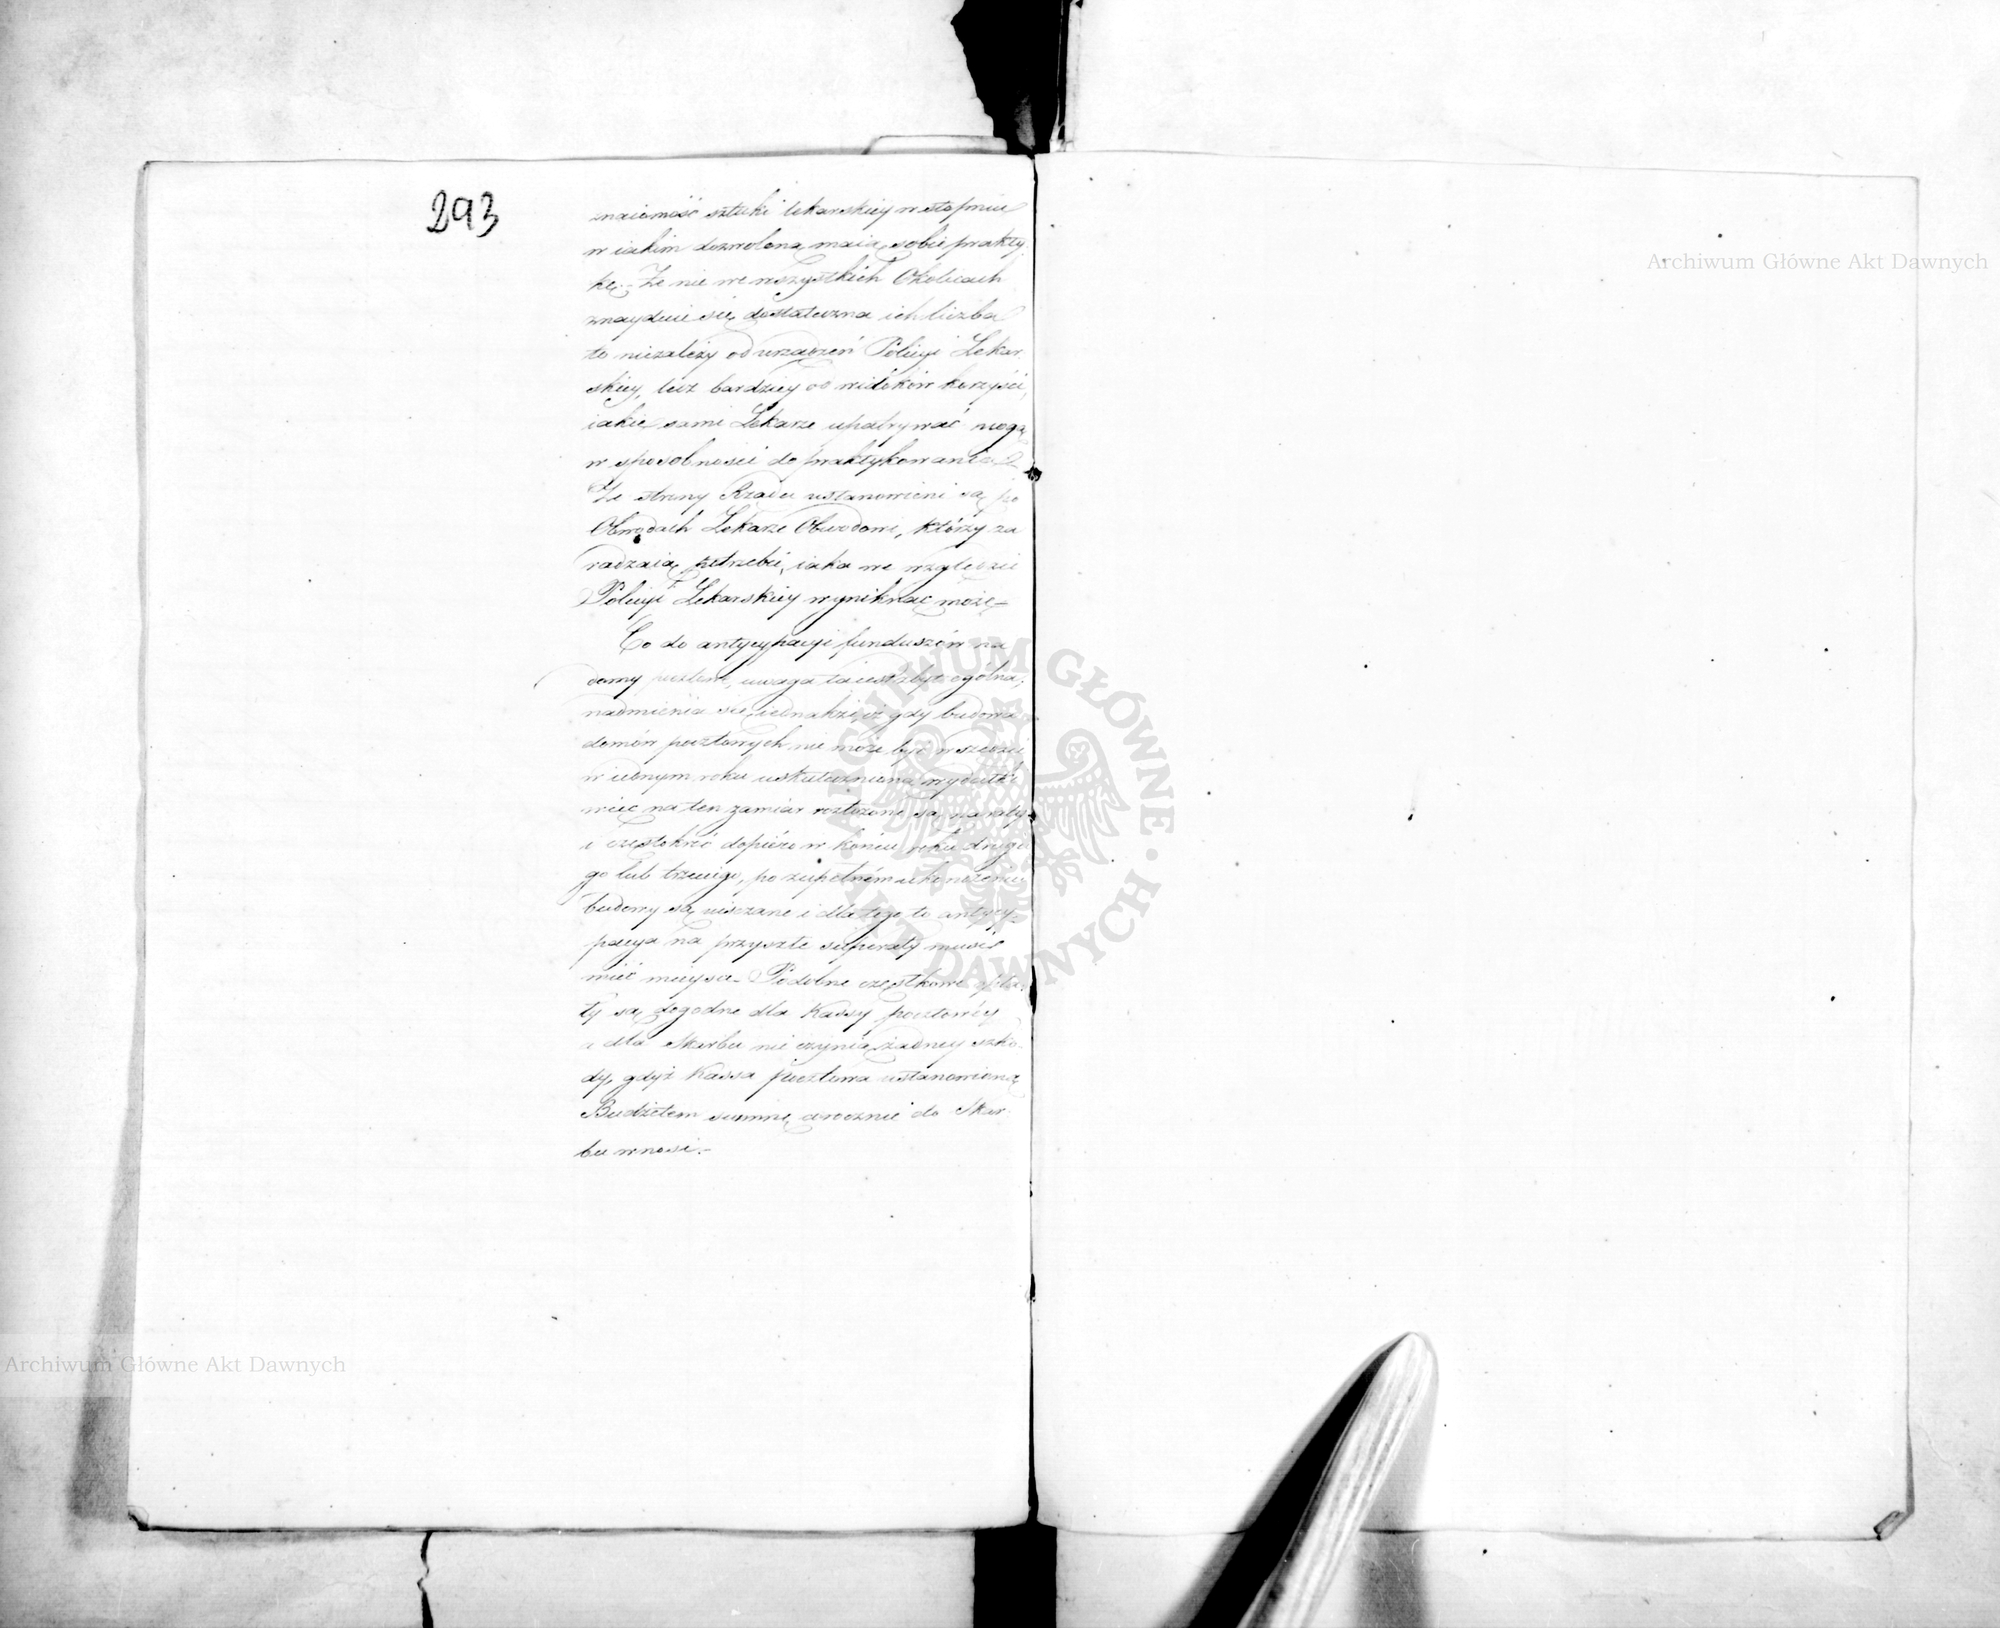 293
znaiomość sztuki lekarskiey w stopniu
w iakim dozwoloną maią sobie prakty
kę.- Że nie we wszystkich Okolicach
znayduie się dostateczna ich liczba
to niezależy od urządzeń Policyi Lekar
skiey, lecz bardziey od widoków korzyści,
iakie sami Lekarze upatrywać mogą
w sposobności do praktykowania
Ze strony Rządu ustanowieni są po
Obwodach Lekarze Obwodowi, którzy za
radzaią potrzebie, iaka we względzie
Policyi Lekarskiey wyniknąć może.-
Co do antycypacyi funduszów na
domy pocztowe, uwaga ta iest zbyt ogólna,
nadmienia się iednakże, iż gdy budowa
domów pocztowych nie może być wszędzie
w iednym roku uskuteczniona wydatki
więc na ten zamiar rozłożone są na raty
i częstokroć dopiero w końcu roku drugie
go lub trzeciego, po zupełném ukończeniu
budowy są uiszczane i dla tego to antycy-
pacya na przyszłe superaty musi
mieć mieysce.- Podobne cząstkowe opła
ty są dogodne dla Kassy pocztowéy
a dla Skarbu nie czynią żadney szko-
dy, gdyż Kassa pocztowa ustanowioną
Budżetem summę corocznie do Skar
bu wnosi.-
Archiwum Główne Akt Dawnych
Archiwum Główne Akt Dawnych
ARCHIWUM GŁÓWNE AKT DAWNYCH